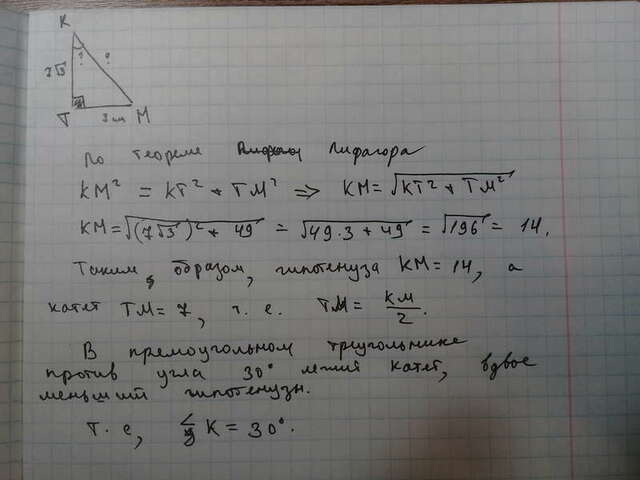 K
? ?
7√3
T 7 см M
По теореме Пифагора
KM² = KT² + TM² => KM = √KT² + TM²
KM = √(7√3)² + 49 = √49·3 + 49 = √196 = 14.
Таким образом, гипотенуза KM = 14, а
катет TM = 7, т. е. TM = KM/2.
В прямоугольном треугольнике
против угла 30° лежит катет, вдвое
меньший гипотенузы.
Т. е, ∠K = 30°.